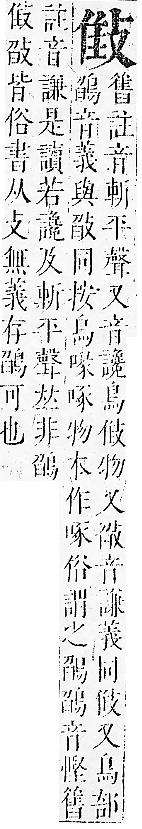 㪁
舊註音斬平聲又音讒鳥㪁物又㪁音謙義同㪁又鳥部
鵮音義與㪁同按鳥喙啄物本作啄俗謂之鵮鵮音慳舊
註音謙是讀若讒及斬平聲𠀤非鵮
㪁㪁皆俗書从攴無義存鵮可也